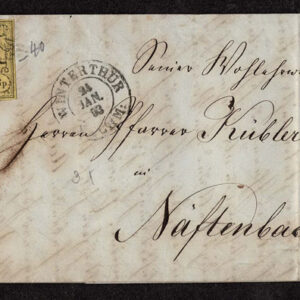 =40
WINTERTHUR
24
JAN.
63
Seiner Wohlehrw
Herren Pfarrer Kübler
in
Näftenba